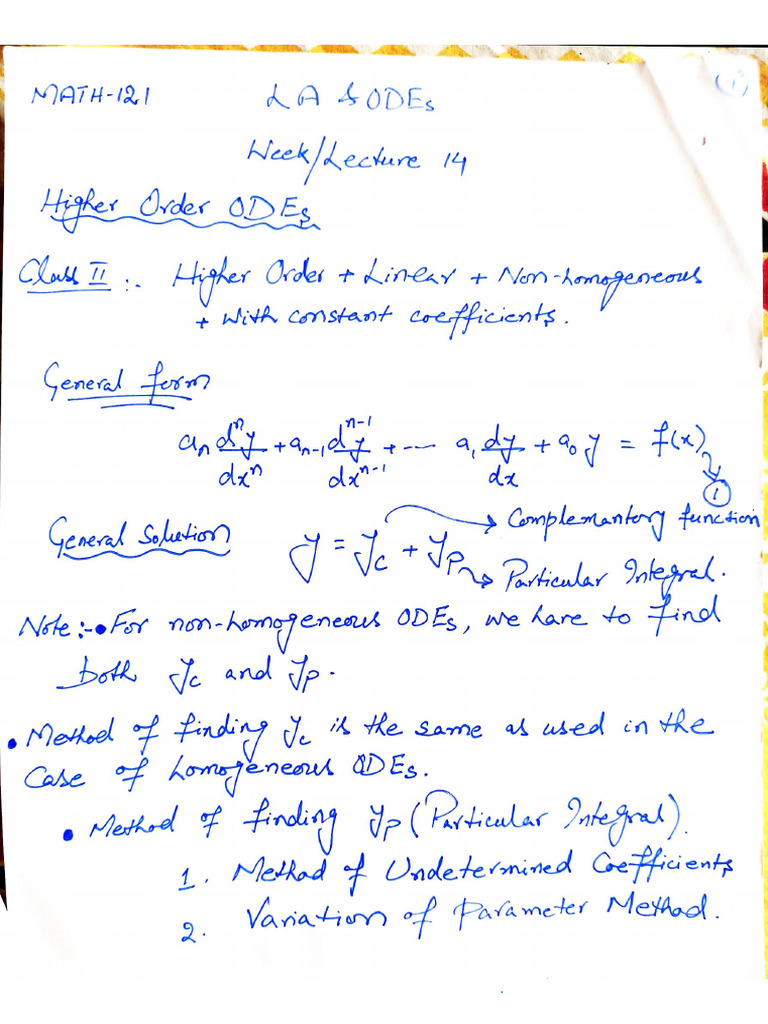 MATH-121 LA & ODEs (1)
Week/Lecture 14
Higher Order ODEs
Class II :- Higher Order + Linear + Non-homogeneous
+ with constant coefficients.
General form
aₙ dⁿy/dxⁿ + aₙ₋₁ dⁿ⁻¹y/dxⁿ⁻¹ + --- a₁ dy/dx + a₀ y = f(x) → (1)
General Solution y = y_c + y_p
→ Complemantory function
→ Particular Integral.
Note :- • For non-homogeneous ODEs, we have to find
both y_c and y_p.
• Method of finding y_c is the same as used in the
case of homogeneous ODEs.
• Method of finding y_p (Particular Integral).
1. Method of Undetermined Coefficients
2. Variation of Parameter Method.